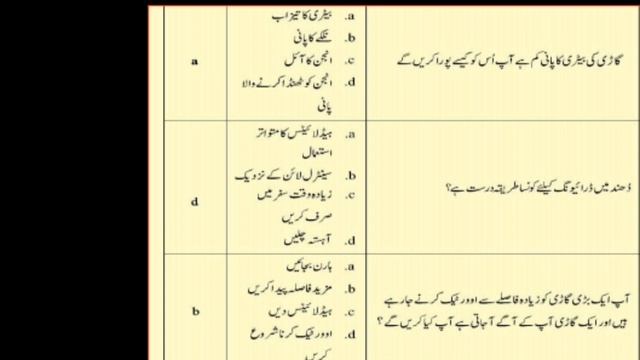 گاڑی کی بیٹری کا پانی کم ہے آپ اُس کو کیسے پورا کریں گے
a. بیٹری کا تیزاب
b. نلکے کا پانی
c. انجن کا آئل
d. انجن کو ٹھنڈا کرنے والا
پانی
a
دُھند میں ڈرائیونگ کیلئے کونسا طریقہ درست ہے؟
a. ہیڈ لائیٹس کا متواتر
استعمال
b. سینٹرل لائن کے نزدیک
c. زیادہ وقت سفر میں
صرف کریں
d. آہستہ چلیں
d
آپ ایک بڑی گاڑی کو زیادہ فاصلے سے اوورٹیک کرنے جا رہے
ہیں اور ایک گاڑی آپ کے آگے آ جاتی ہے آپ کیا کریں گے ؟
a. ہارن بجائیں
b. مزید فاصلہ پیدا کریں
c. ہیڈ لائیٹس دیں
d. اوورٹیک کرنا شروع
کریں
b